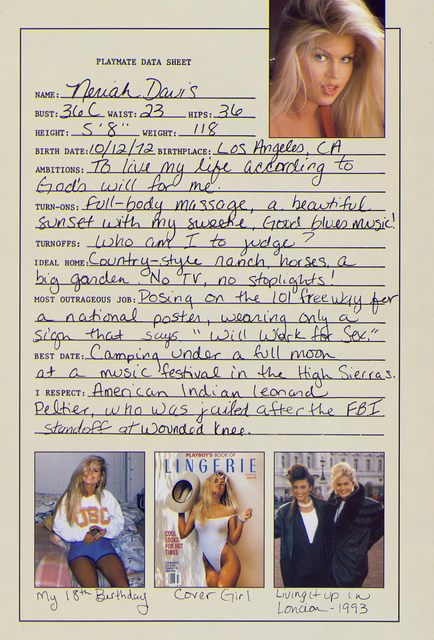 PLAYMATE DATA SHEET
NAME: Neriah Davis
BUST: 36C WAIST: 23 HIPS: 36
HEIGHT: 5'8" WEIGHT: 118
BIRTH DATE: 10/12/72 BIRTHPLACE: Los Angeles, CA
AMBITIONS: To live my life according to
God's will for me.
TURN-ONS: Full-body massage, a beautiful
sunset with my sweetie, Good blues music!
TURNOFFS: Who am I to judge?
IDEAL HOME: Country-style ranch, horses, a
big garden. No TV, no stoplights!
MOST OUTRAGEOUS JOB: Posing on the 101 freeway for
a national poster, wearing only a
sign that says, "Will Work for Sex."
BEST DATE: Camping under a full moon
at a music festival in the High Sierras.
I RESPECT: American Indian Leonard
Peltier, who was jailed after the FBI
standoff at Wounded Knee.
USC
PLAYBOY'S BOOK OF
LINGERIE
COOL
LOOKS
FOR HOT
TIMES
My 18th Birthday
Cover Girl
Living it up in
London - 1993